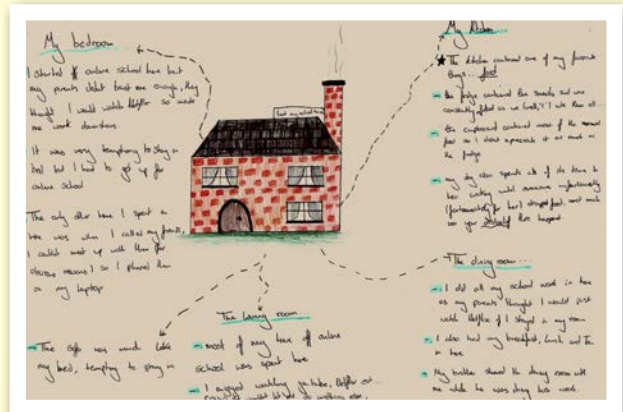 My bedroom
I started online school here but
my parents didn't trust me enough, they
thought I would watch Netflix so made
me work downstairs.
It was very tempting to stay in
bed but I had to get up for
online school
The only other time I spent in
here was when I called my friends,
I couldn't meet up with them (for
obvious reasons) so I phoned them
on my laptop
The sofa was much like
my bed, tempting to stay in
The Living room
most of my time off online
school was spent here
I enjoyed watching youtube, Netflix
My Kitchen
The kitchen contained one of my favourite
things... food
the fridge contained the snacks and was
constantly filled as we (really) ate them
the cupboard contained most of the normal
food so I didn't appreciate it as much as
the fridge
my dog also spends all of its time in
here waiting until someone unfortunately
(fortunately for her) dropped food, and
this happened.
The dining room...
I did all my school work in here
as my parents thought I would just
watch Netflix if I stayed in my room
I also had my breakfast, lunch and Tea
in here
My brother shared the dining room with
me while he was doing his work.